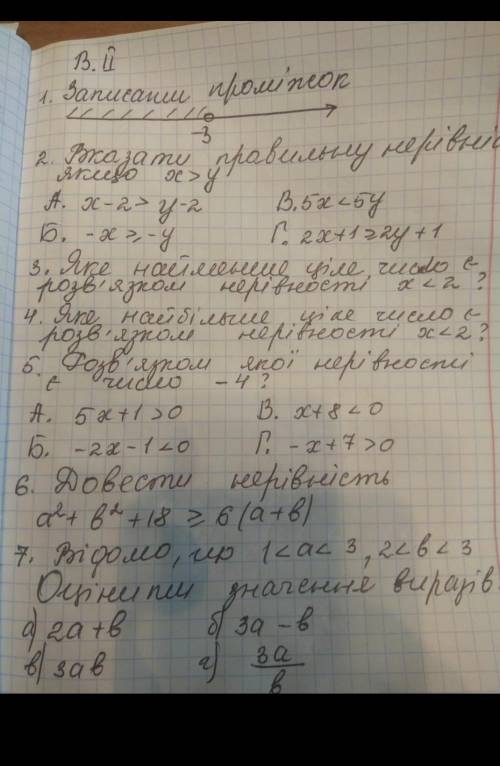 В. ІІ
1. Записати проміжок
-3
2. Вказати правильну нерівніс
якщо x > y
А. x-2 > y-2 В. 5x < 5y
Б. -x ≥ -y Г. 2x+1 ≥ 2y+1
3. Яке найменше ціле число є
розв'язком нерівності x < 2 ?
4. Яке найбільше ціле число є
розв'язком нерівності x < 2?
5. Розв'язком якої нерівності
є число -4 ?
А. 5x+1 > 0 В. x+8 < 0
Б. -2x-1 < 0 Г. -x+7 > 0
6. Довести нерівність
a²+ b² +18 ≥ 6(a+b)
7. Відомо, що 1 < a < 3, 2 < b < 3
Оцінити значення виразів
а) 2a+b б) 3a-b
в) 3ab г) 3a/b